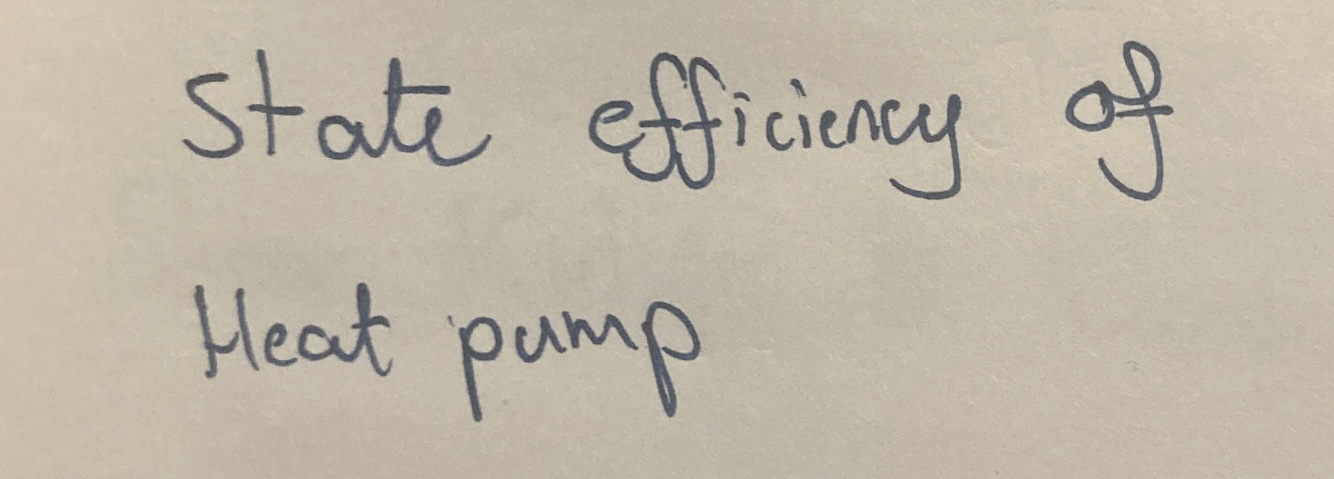 State efficiency of
Heat pump